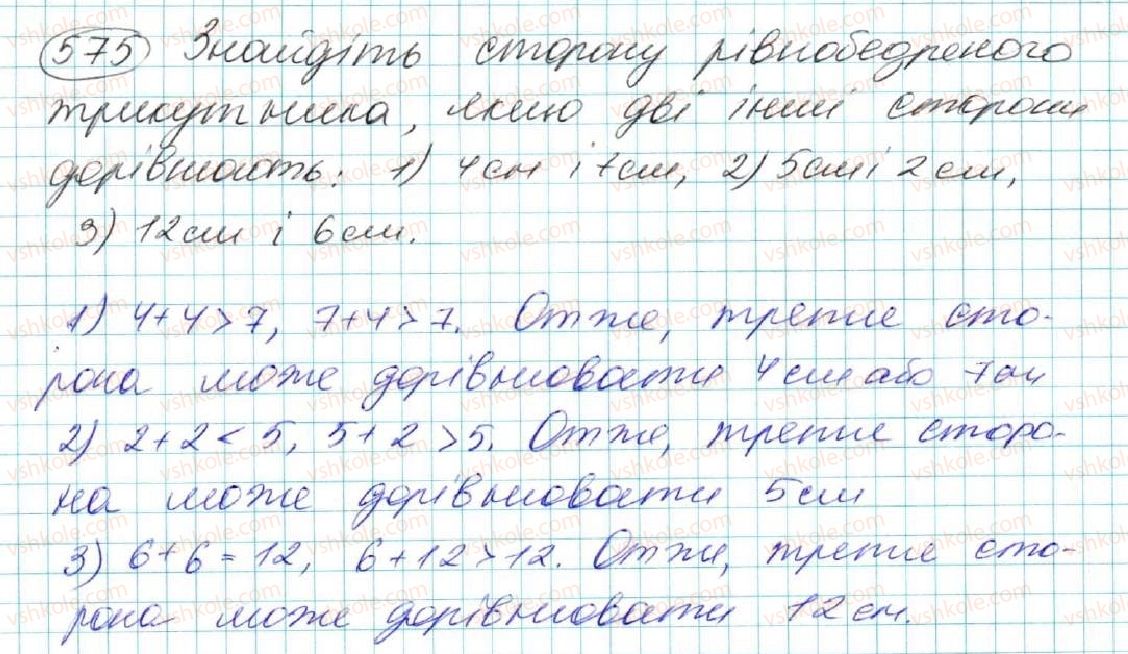 575 Знайдіть сторону рівнобедреного
трикутника, якщо дві інші сторони
дорівнюють: 1) 4см і 7см, 2) 5см і 2 см,
3) 12см і 6см.
1) 4+4>7, 7+4>7. Отже, третя сто-
рона може дорівнювати 4 см або 7см
2) 2+2<5, 5+2>5. Отже, третя сторо-
на може дорівнювати 5см
3) 6+6=12, 6+12>12. Отже, третя сто-
рона може дорівнювати 12см.